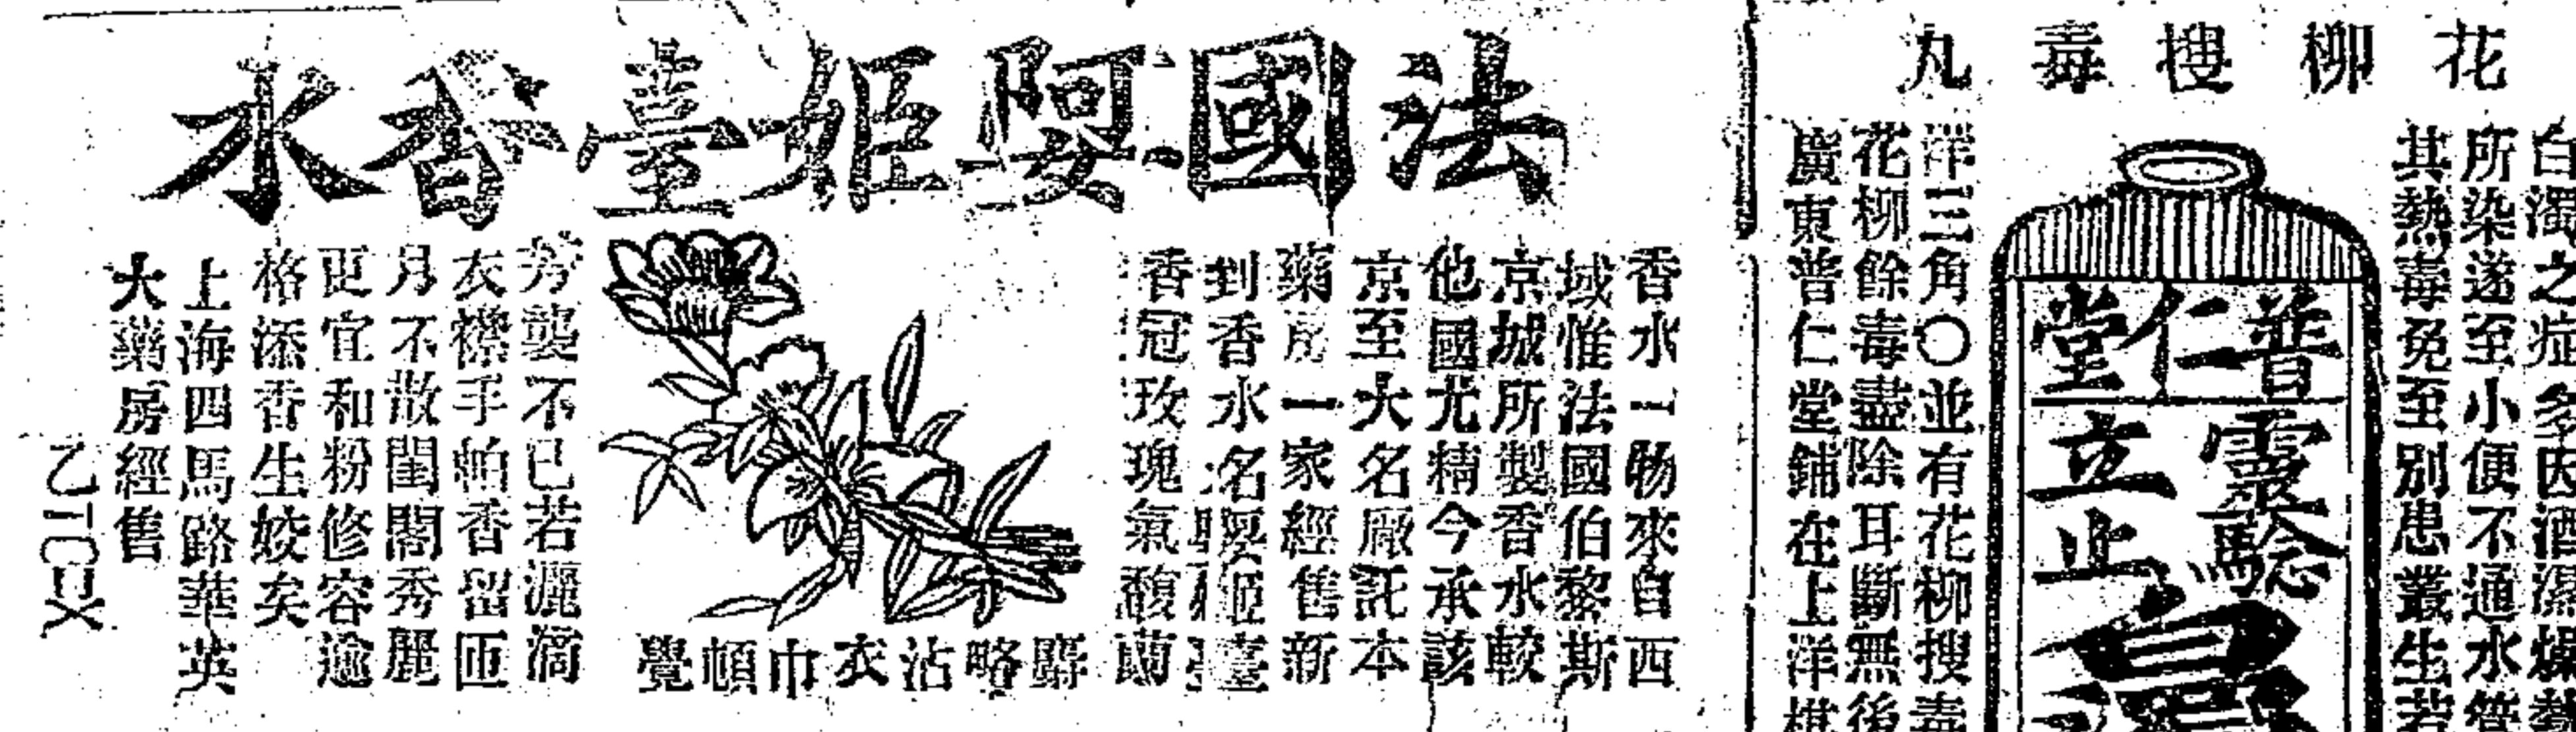 花柳搜毒丸
白濁之症多因酒濕燥熱
所染遂至小便不通水管
其熱毒免至別患叢生若
普仁堂
靈驗
立止
洋三角〇並有花柳搜毒
花柳餘毒盡除耳斷無後
廣東普仁堂鋪在上洋棋
法國嬰姬臺香水
香水一物來自西
域惟法國伯黎斯
京城所製香水較
他國尤精今承該
京至大名廠託本
藥房一家經售新
到香水名嬰姬臺
香冠玫瑰氣馥蘭
麝略沾衣巾頓覺
芳襲不已若灑滴
衣襟手帕香留匝
月不散閨閣秀麗
更宜和粉修容逾
格添香生姣矣
上海四馬路華英
大藥房經售